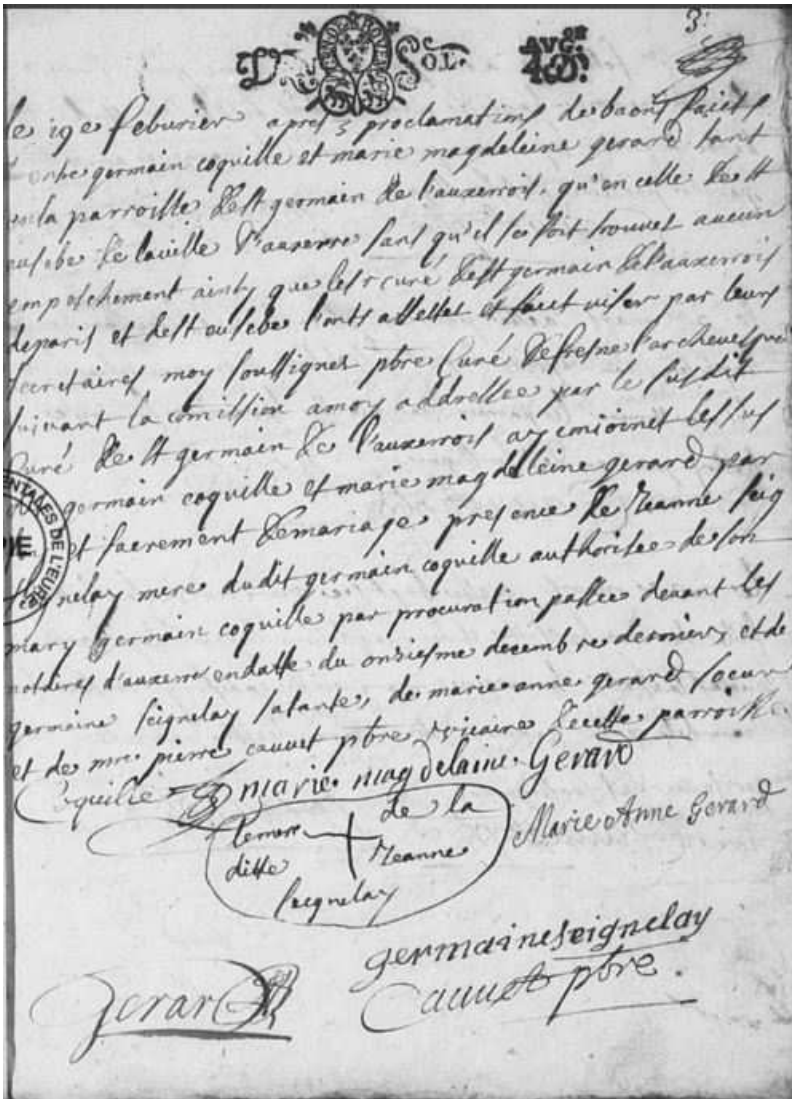 3
GEN DE ROVEN
D'UN SOL.
AVG.on
4 D.
le 19e feburier apres 3 proclamations de bans faits
entre germain coquille et marie magdeleine gerard tant
en la parroisse de st germain de l'auxerrois, qu'en celle de st
eusebe de la ville d'auxerre sans qu'il se soit trouvet aucun
empeschement ainsy que les rs curé de st germain de l'auxerrois
de paris et de st eusebe l'onts attestet et faict viser par leurs
secretaires, moy soussignet pbre curé de fresne l'archeuesque
suivant la comission a moy addressée par le susdit
curé de st germain de l'auxerrois ay conioinct les sus
germain coquille et marie magdeleine gerard par
sacrement de mariage presence de Jeanne seig
nelay mere dudit germain coquille authorisée de son
mary germain coquille par procuration passée devant les
notaires d'auxerre en datte du onziesme decembre dernier, et de
germaine seignelay sa tante, de marie anne gerard soeur
et de mre pierre cauvet pbre vicaire de cette parroisse.
Coquille marie magdelaine Gerard
de la
ditte Jeanne
seignelay
Marie Anne Gerard
germaine seignelay
Gerard
Cauvet pbre.
ENTALES DE L'EURE